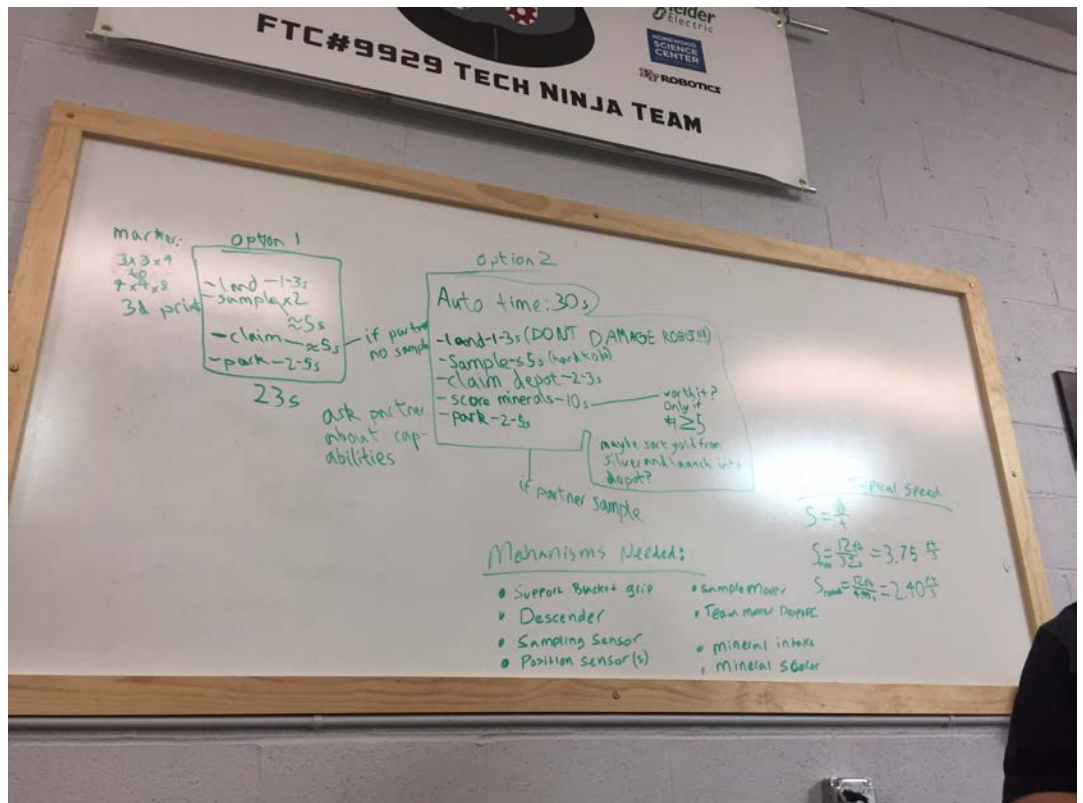 Electric
HOMEWOOD
SCIENCE
CENTER
ROBOTICS
FTC#9929 TECH NINJA TEAM
marker:
3x3x4
to
4x4x8
3d print
option 1
-land-1-3s
-sample x2
≈5s
-claim-≈5s
-park-2-5s
23s
if partner
no sample
ask partner
about cap-
abilities
option 2
Auto time:30s
-land-1-3s(DONT DAMAGE ROBOT!!!)
-Sample-≤5s
-claim depot-2-3s
-score minerals-10s
-park-2-5s
worth it?
only if
#≥5
maybe sort gold from
silver and launch into
depot?
if partner sample
Typical Speed
=3.75 ft/s
=2.40 ft/s
Mehanisms Needed:
• Support Bracket grip
• Descender
• Sampling Sensor
• Position sensor(s)
• Sample Mover
• Team
• mineral intake
• mineral